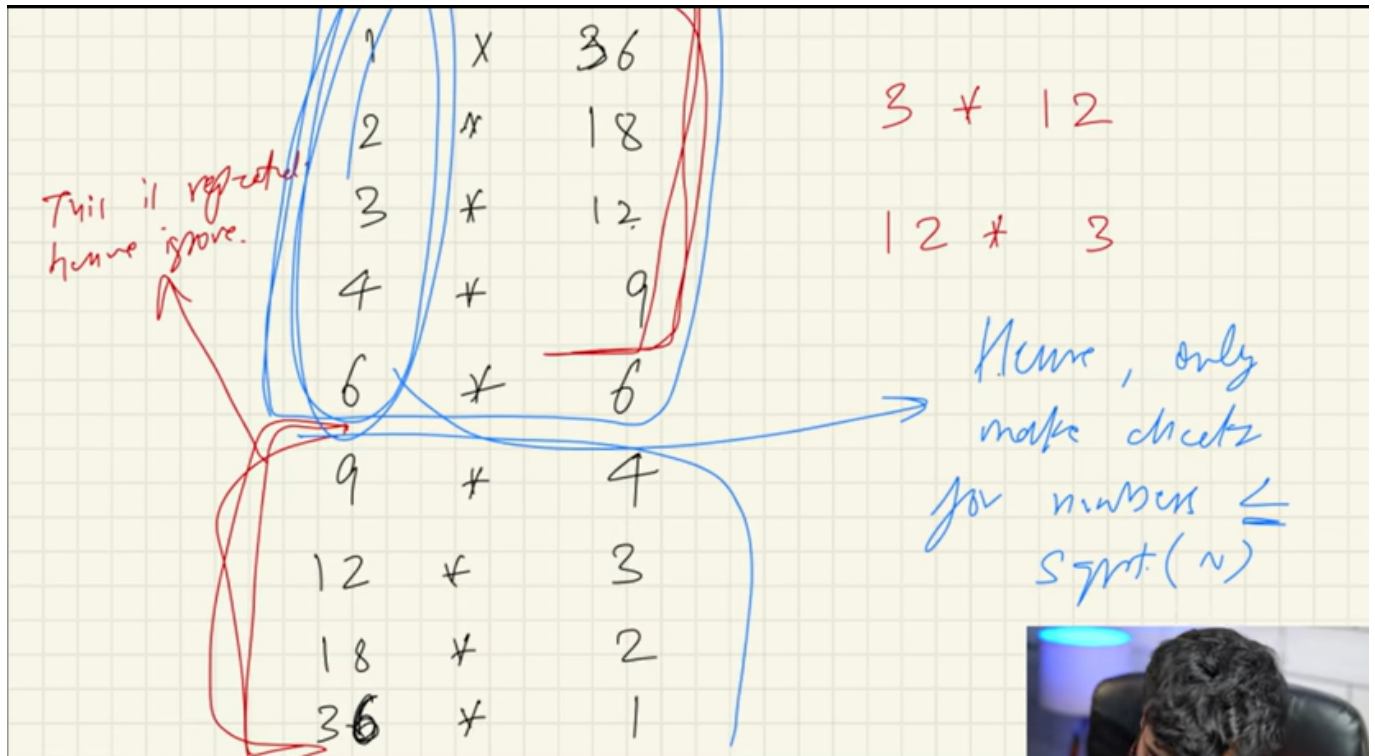 1 x 36
2 * 18
3 * 12
4 * 9
6 * 6
9 * 4
12 * 3
18 * 2
36 * 1
This is repeated
hence ignore.
3 * 12
12 * 3
Hence, only
make checks
for numbers <=
sqrt(N)